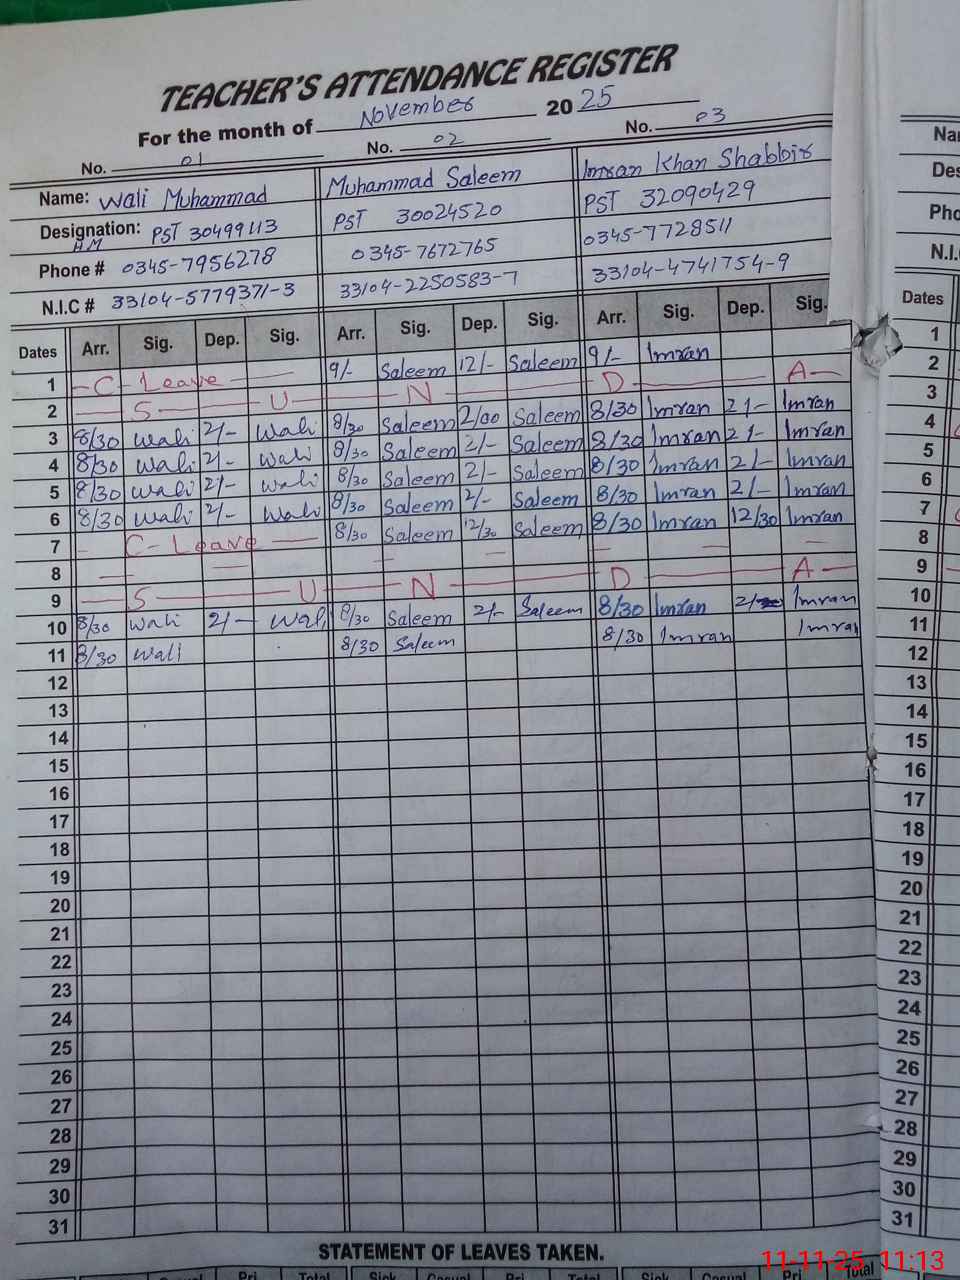 TEACHER'S ATTENDANCE REGISTER
For the month of November 2025
No. 01 No. 02 No. 03
Name: Wali Muhammad Muhammad Saleem Imran Khan Shabbir
Designation: PST 30499113 PST 30024520 PST 32090429
H.M
Phone # 0345-7956278 0345-7672765 0345-7728511
N.I.C # 33104-5779371-3 33104-2250583-7 33104-4741754-9
Dates Arr. Sig. Dep. Sig. Arr. Sig. Dep. Sig. Arr. Sig. Dep. Sig.
1 - C - Leave - 9/- Saleem 12/- Saleem 9/- Imran
2 S U N D A
3 8/30 Wali 2/- Wali 8/30 Saleem 2/00 Saleem 8/30 Imran 2/- Imran
4 8/30 Wali 2/- Wali 8/30 Saleem 2/- Saleem 8/30 Imran 2/- Imran
5 8/30 Wali 2/- Wali 8/30 Saleem 2/- Saleem 8/30 Imran 2/- Imran
6 8/30 Wali 2/- Wali 8/30 Saleem 2/- Saleem 8/30 Imran 2/- Imran
7 - C - Leave - 8/30 Saleem 12/30 Saleem 8/30 Imran 12/30 Imran
8 - - - - - - -
9 S U N D A
10 8/30 Wali 2/- Wali 8/30 Saleem 2/- Saleem 8/30 Imran 2/- Imran
11 8/30 Wali 8/30 Saleem 8/30 Imran Imran
12
13
14
15
16
17
18
19
20
21
22
23
24
25
26
27
28
29
30
31
STATEMENT OF LEAVES TAKEN.
Casual Pri Total Sick Casual Pri Total Sick Casual Pri Total
Dates
1
2
3
4
5
6
7
8
9
10
11
12
13
14
15
16
17
18
19
20
21
22
23
24
25
26
27
28
29
30
31
11-11-25 11:13